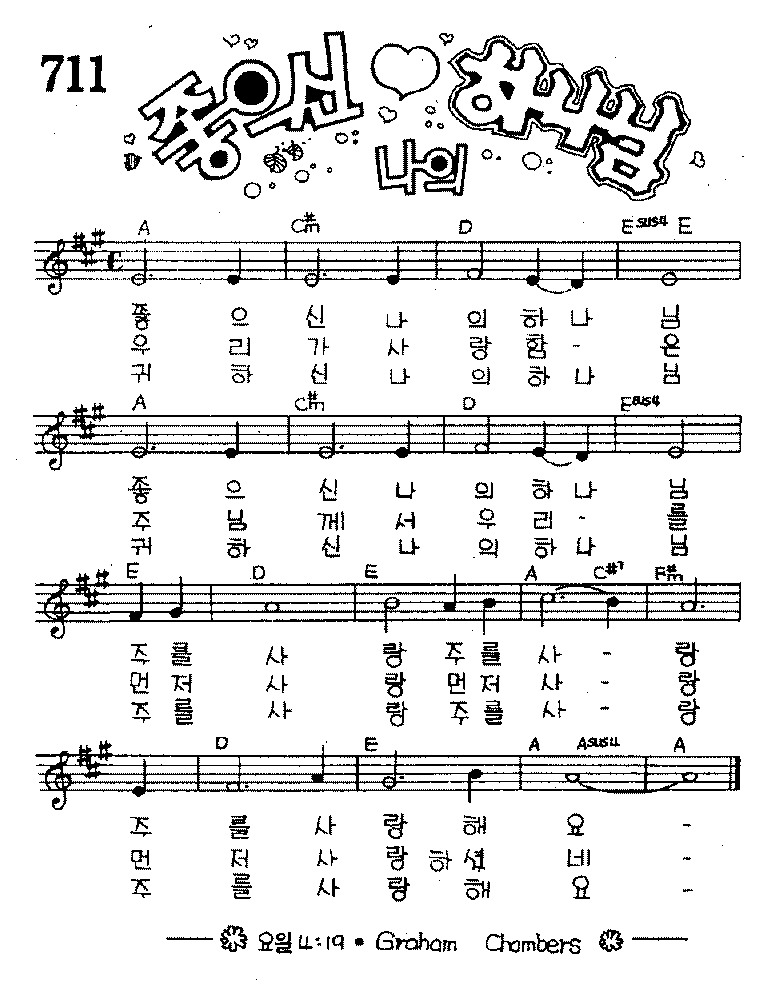 711
좋으신 나의 하나님
A C#m D Esus4 E
좋 으 신 나 의 하 나 님
우 리 가 사 랑 함 - 은
귀 하 신 나 의 하 나 님
A C#m D Esus4
좋 으 신 나 의 하 나 님
주 님 께 서 우 리 - 를
귀 하 신 나 의 하 나 님
E D E A C#7 F#m
주 를 사 랑 주 를 사 - 랑
먼 저 사 랑 먼 저 사 - 랑
주 를 사 랑 주 를 사 - 랑
D E A Asus4 A
주 를 사 랑 해 요 -
먼 저 사 랑 하 셨 네 -
주 를 사 랑 해 요 -
요일 4:19 • Graham Chambers